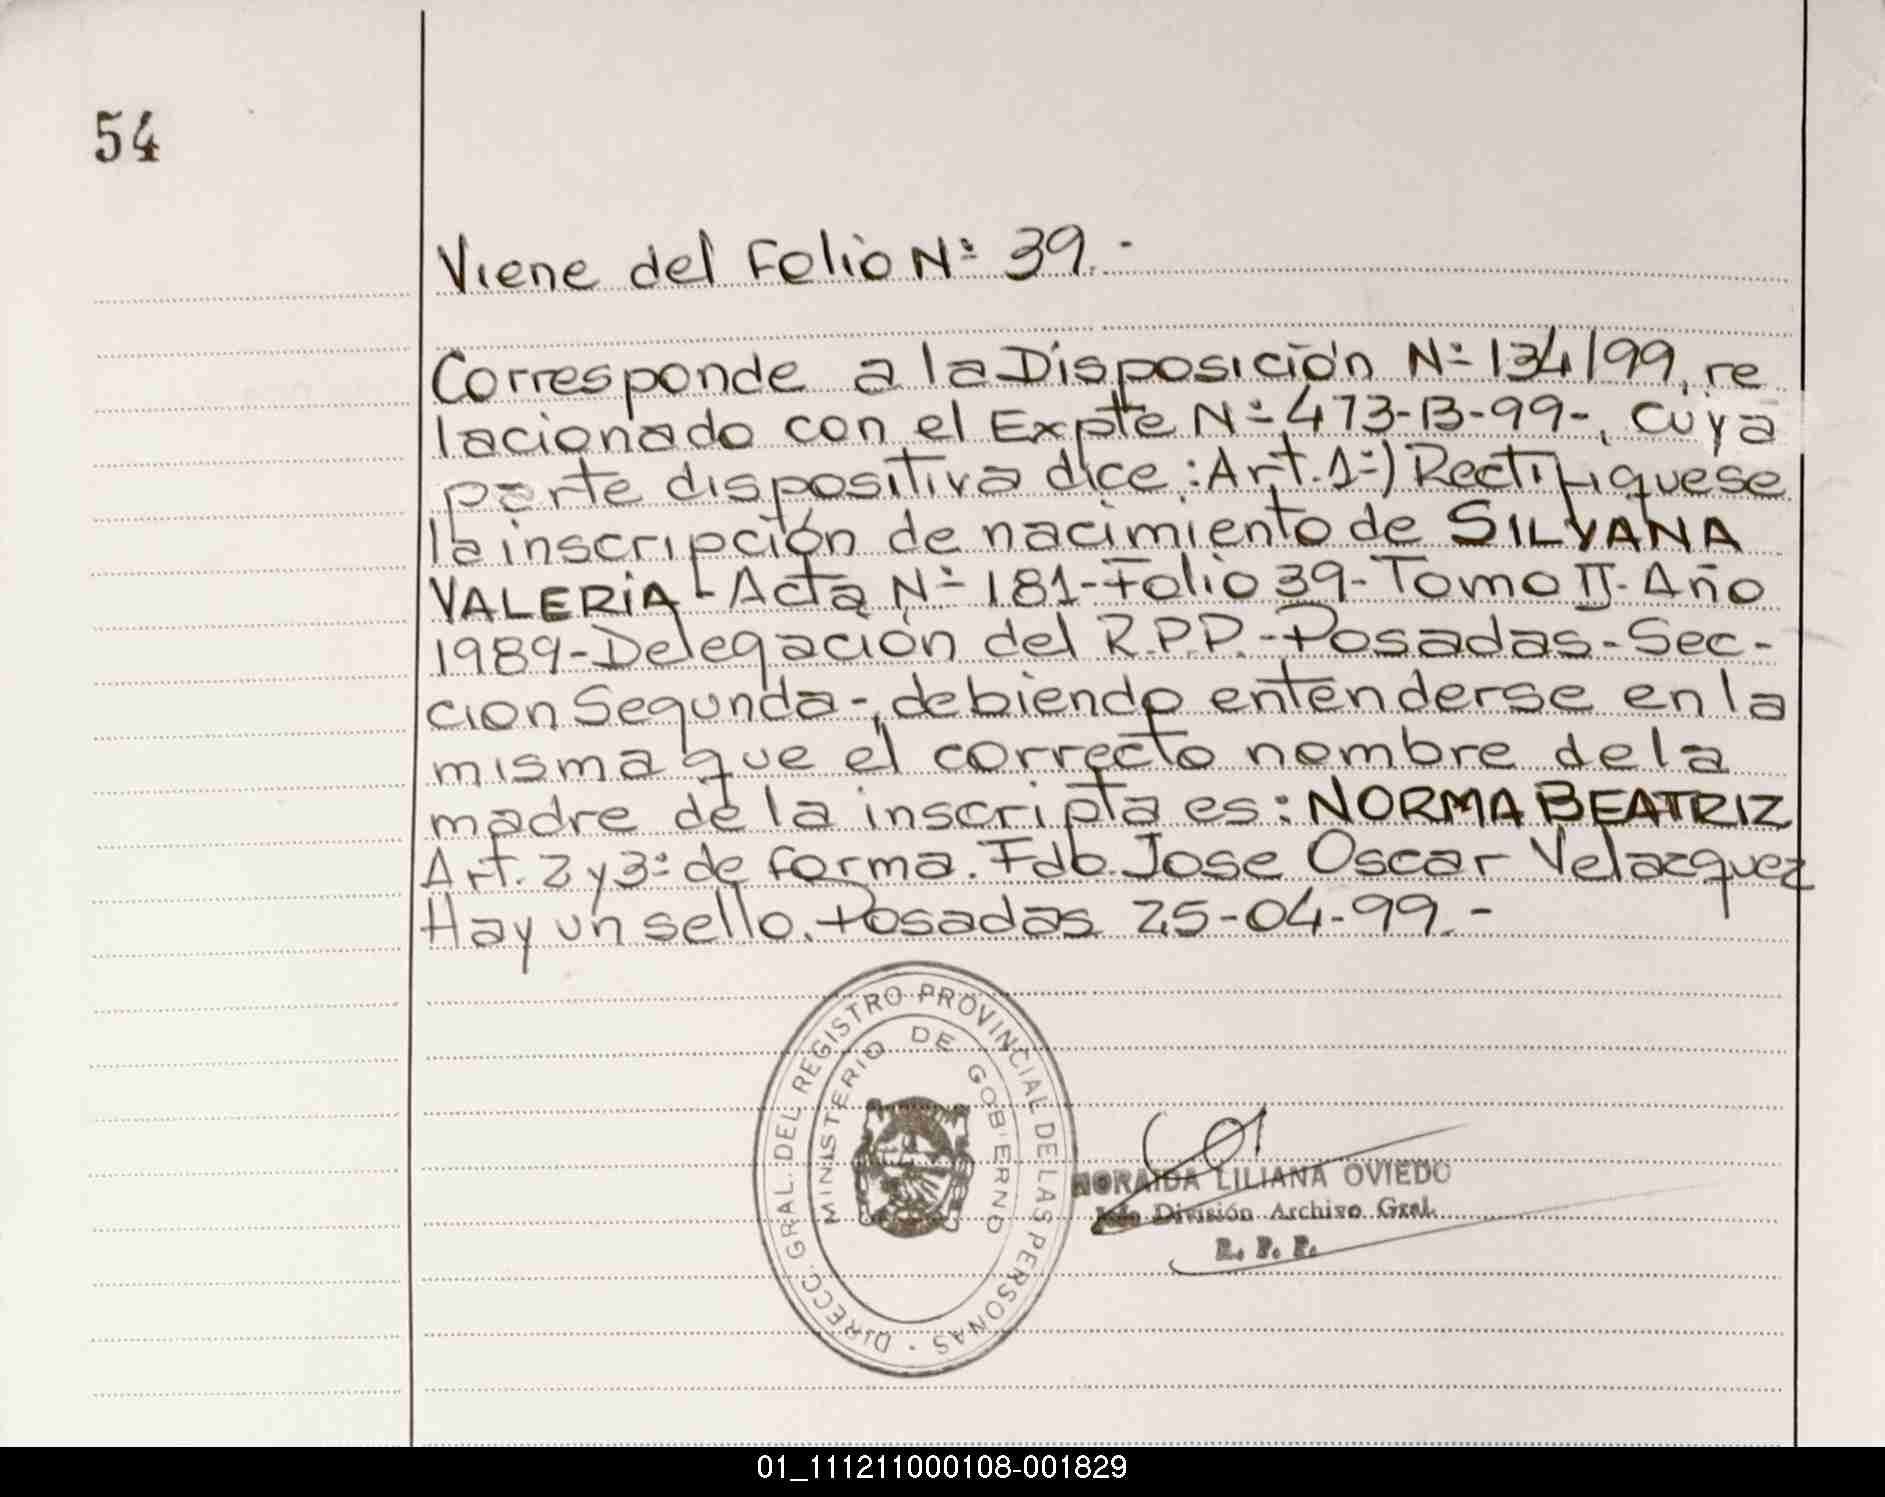 54
Viene del Folio Nº 39.-
Corresponde a la Disposición Nº 134/99, re
lacionado con el Expte Nº 473-B-99-, cuya
parte dispositiva dice: Art. 1º) Rectifiquese
la inscripción de nacimiento de SILVANA
VALERIA - Acta Nº 181-Folio 39-Tomo II-Año
1989-Delegación del R.P.P.-Posadas-Sec-
cion Segunda-, debiendo entenderse en la
misma que el correcto nombre de la
madre de la inscripta es: NORMA BEATRIZ
Art. 2 y 3º de forma. Fdo. Jose Oscar Velazquez
Hay un sello. Posadas 25-04-99.-
DIRECC. GRAL. DEL REGISTRO PROVINCIAL DE LAS PERSONAS
MINISTERIO DE GOBIERNO
NORAIDA LILIANA OVIEDO
Jefe División Archivo Gral.
R. P. P.
01_111211000108-001829